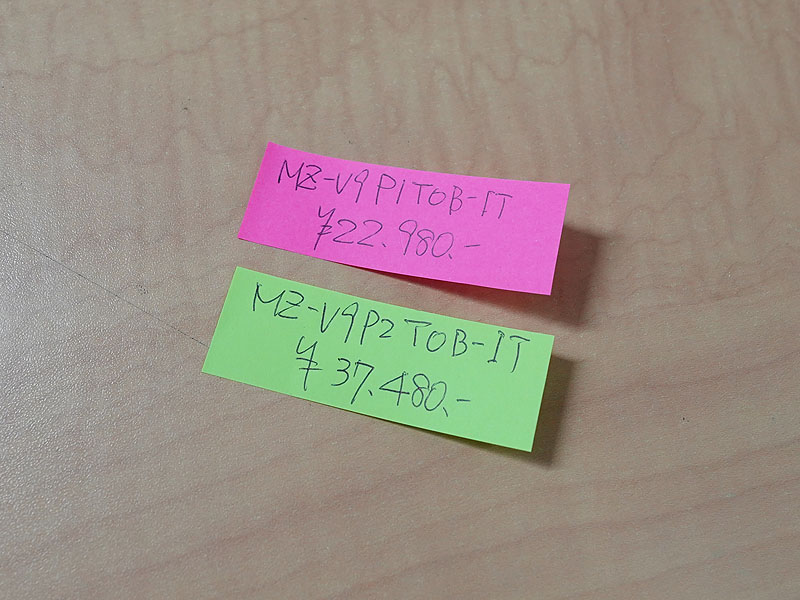 MZ-V9P1T0B-IT
¥22.980.-
MZ-V9P2T0B-IT
¥37.480.-